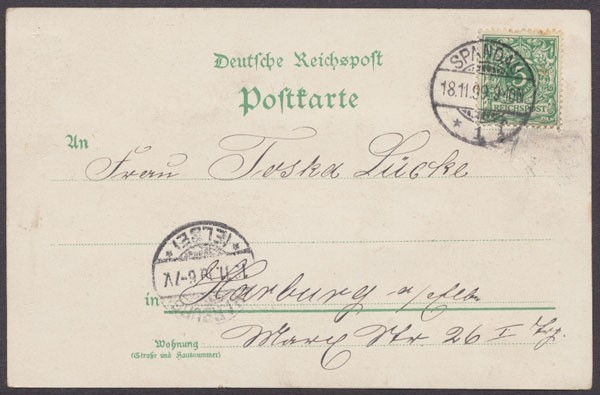 Deutsche Reichspost
Postkarte
SPANDAU
18.11.99.9-10N
* 1 1
5
REICHSPOST
An
Frau Toska Lücke
(ELBE)
in Harburg a/Elbe
Wohnung
(Straße und Hausnummer)
Marx Str 26 I Trp.